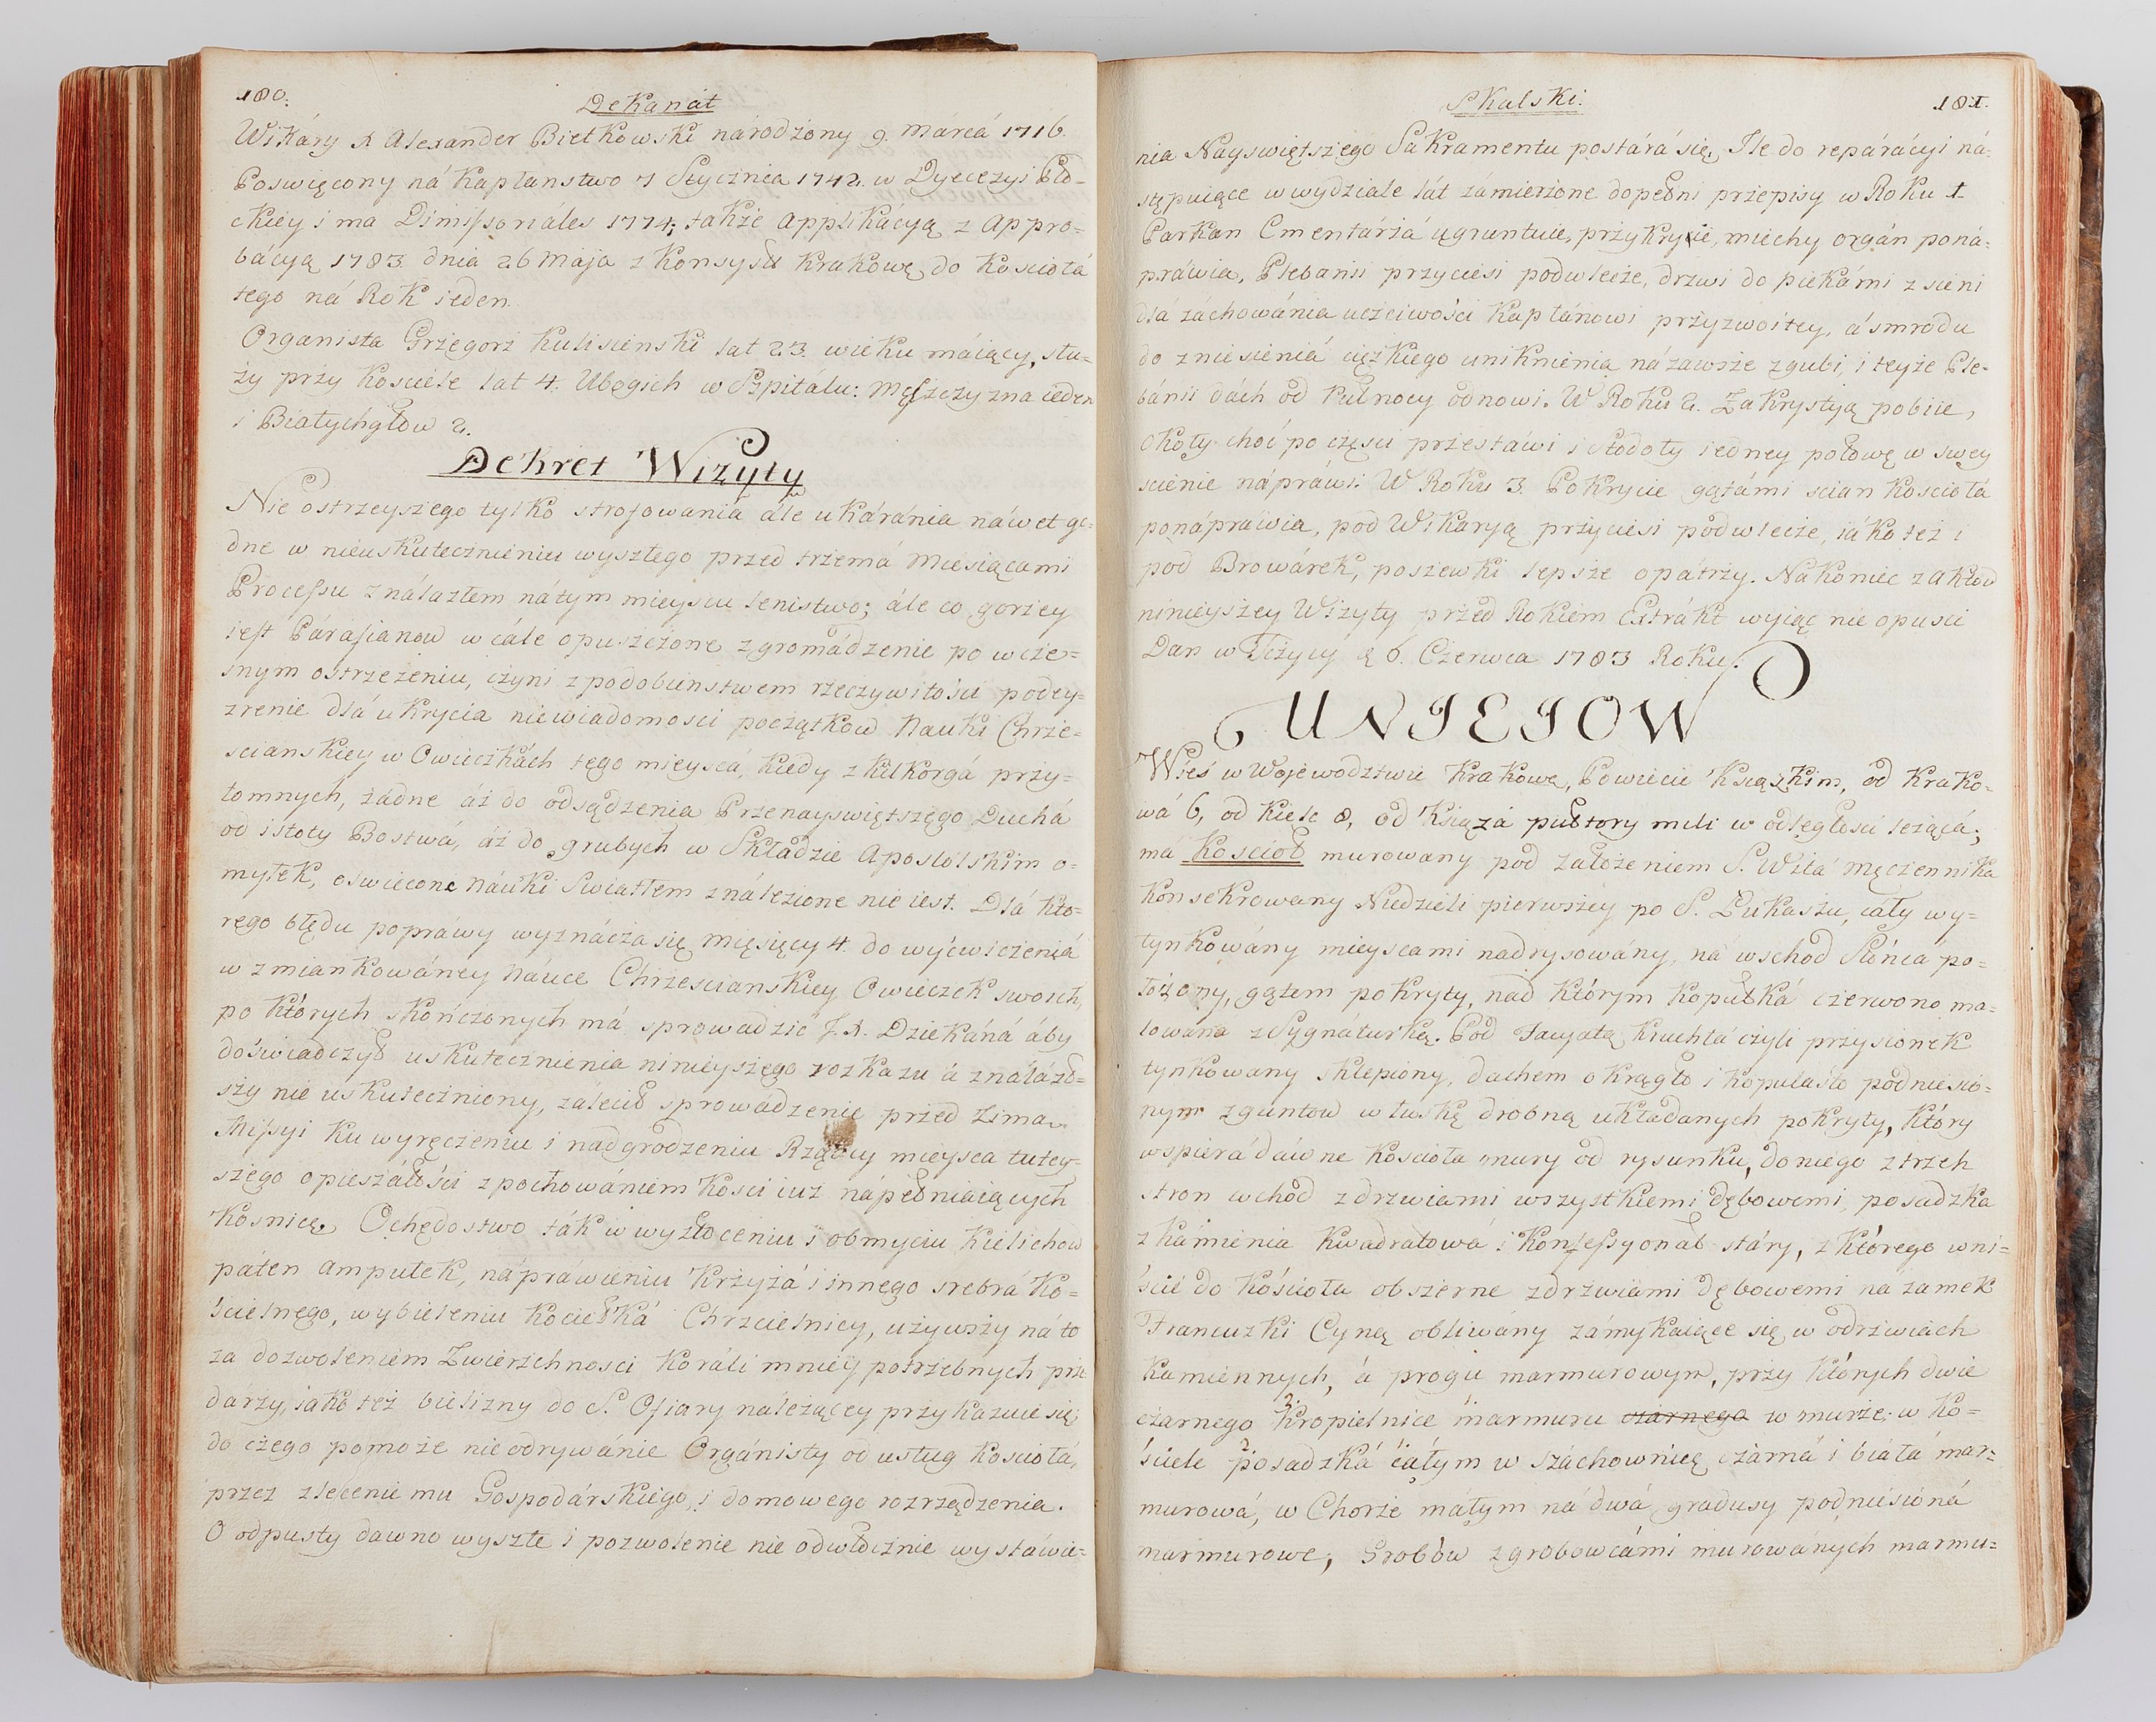 180.
Dekanat
Wikáry X Alexander Bietkowski národżony 9. Márcá 1716.
Poswięcony ná Kapłanstwo 7 Stycznia 1742. w Dyecezyi Pło-
ckiey i ma Dimissoriáles 1774; także Applikácyą z Appro=
bácyą 1783 dnia 26 Maja z Konsysu Krakowę do Kościołá
tego ná Rok ieden.
Organista Grzegorz Kulisienski lat 23. wieku máiący, słu=
ży przy Kościele lat 4. Ubogich w Szpitálu: Męszczyzna ieden
i Białychgłow 2.
Dekret Wizyty
Nie ostrzeyszego tylko strofowania ále ukáránia náwet go-
dne w nieuskutecznieniu wyszłego przed trzemá Miesiącami
Processu ználazłem nátym mieyscu lenistwo; ále co gorzey
iest Páráfianow wcále opuszczone zgromádzenie po wcze=
snym ostrzeżeniu, czyni z podobienstwem rzeczywitości podey=
zrenie dlá ukrycia niewiadomosci początkow Nauki Chrze=
scianskiey w Owieczkách tego mieyscá, kiedy z kilkorgá przy=
tomnych, żadne áż do odsądzenia Przenayswiętszego Duchá
od istoty Bostwá, áż do grubych w Składzie Apostolskim o=
myłek, oswiecone náuki Swiatłem ználezione nie iest. Dlá Kto=
rego błędu popráwy wyznácza się Mięsięcy 4. do wyćwiczeniá
w zmiankowáney náuce Chrzescianskiey Owieczek swoich,
po których skończonych má sprowadzić J.X. Dziekáná áby
doświadczył uskutecznienia ninieyszego rozkazu á ználázł=
szy nie uskuteczniony, zálecił sprowádzenie przed Zimą
Missyi ku wyręczeniu i nadgrodzeniu Rządcy mieysca tutey-
szego opieszáłości z pochowániem Kosci iuż nápełniaiących
Kosnicę. Ochędostwo ták w wyzłoceniu i obmyciu Kielichow
páten Ampułek, nápráwieniu Krzyżá i innego srebrá Ko=
ścielnego, wybieleniu Kociełká Chrzcielnicy, używszy ná to
za dozwoleniem Zwierzchnosci Koráli mniey potrzebnych prze
darzy, iáko też bielizny do S. Ofiary należącey przykazuie się,
do czego pomoże nieodrywánie Orgánisty od usług Kościołá,
przez zlecenie mu Gospodárskiego, i domowego rozrządzenia.
O odpusty dawno wyszłe i pozwolenie nie odwłócznie wystáwie=
Skalski.
181.
nia Nayswiętszego Sakramentu postárá się. Ile do reparácyi ná-
stępuiące w wydziale lát zámierzone dopełni przepisy w Roku 1
Parkan Cmentárżá ugruntuie, przykryie, miechy orgán poná=
práwia, Plebanii przyciesi podwlecze, drzwi do piekárni z sieni
dlá záchowánia uczciwości Kapłánowi przyzwoitey, á smrodu
do zniesieniá ciężkiego uniknienia názawsze zgubi, i teyże Ple-
bánii dách od Pułnocy odnowi. W Roku 2. Zakrystyą pobiie,
Okoły choć po częsci przestáwi i Stodoły iedney połowę w swey
scienie nápráwi. W Roku 3. Pokrycie gątámi scian Kościołá
ponápráwia, pod Wikaryą przyciesi podwlecze, iáko też i
pod Browárek, poszewki lepsze opátrzy. Nakoniec zakłow
ninieyszey Wizyty przed Rokiem Extrákt wyiąc nie opusci
Dan w Tczycy d 6. Czerwca 1783 Roku.
UNIEIOW
Wieś w Wojewodztwie Krakowę, Powiecie Ksiąskim, od Krako-
wá 6, od Kielc 8, od Ksiązá pułtory mili w odległosci leżącá;
má Kościoł murowany pod założeniem S. Witá Męczennika
Konsekrowany Niedzieli pierwszey po S. Łukaszu, cáły wy=
tynkowány mieyscami nadrysowány, ná wschod Słońcá po=
łożony, gątem pokryty, nad Którym Kopułká czerwono ma-
lowána z Sygnáturką. Pod Facyatą Kruchtá czyli przysionek
tynkowany sklepiony, dachem okrągło i Kopulásto podniesio=
nym z guntow w łuskę drobną układanych pokryty, Który
wspierá dáwne Kościoła mury od rysunku, do niego z trzech
stron wchod z drzwiami wszystkiemi dębowemi, posadzka
z Kámienia Kwadratowá i Konfessyonał stáry, z Którego wni=
ście do Kościoła obszerne z drzwiámi dębowemi na zamek
Francuzki Cyną obliwány zámykaiące się w odrzwiach
Kamiennych, á progu marmurowym, przy których dwie
czarnego Kropielnice marmuru czárnego w murze; w Ko=
ściele posadzká cáłym w szachownicę czárná i białá mar=
murowá, w Chorze máłym ná dwá gradusy podniesioná
marmurowe; Grobów z grobowcámi murowánych marmu=